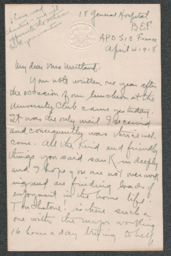 18 General Hospital
B.E.F.
A.P.O. S.18 France
April 4 1918
My dear Miss Maitland.
You note written one year after
the occasion of our luncheon at the
University Club came yesterday.
It was the only mail I received
and consequently was thrice wel-
come. All the kind and friendly
things you said sank in deeply
and I hope you are not over work
ing and are finding loads of
enjoyment in the home life
is there such a
one with the major working
16 hours a day trying to help